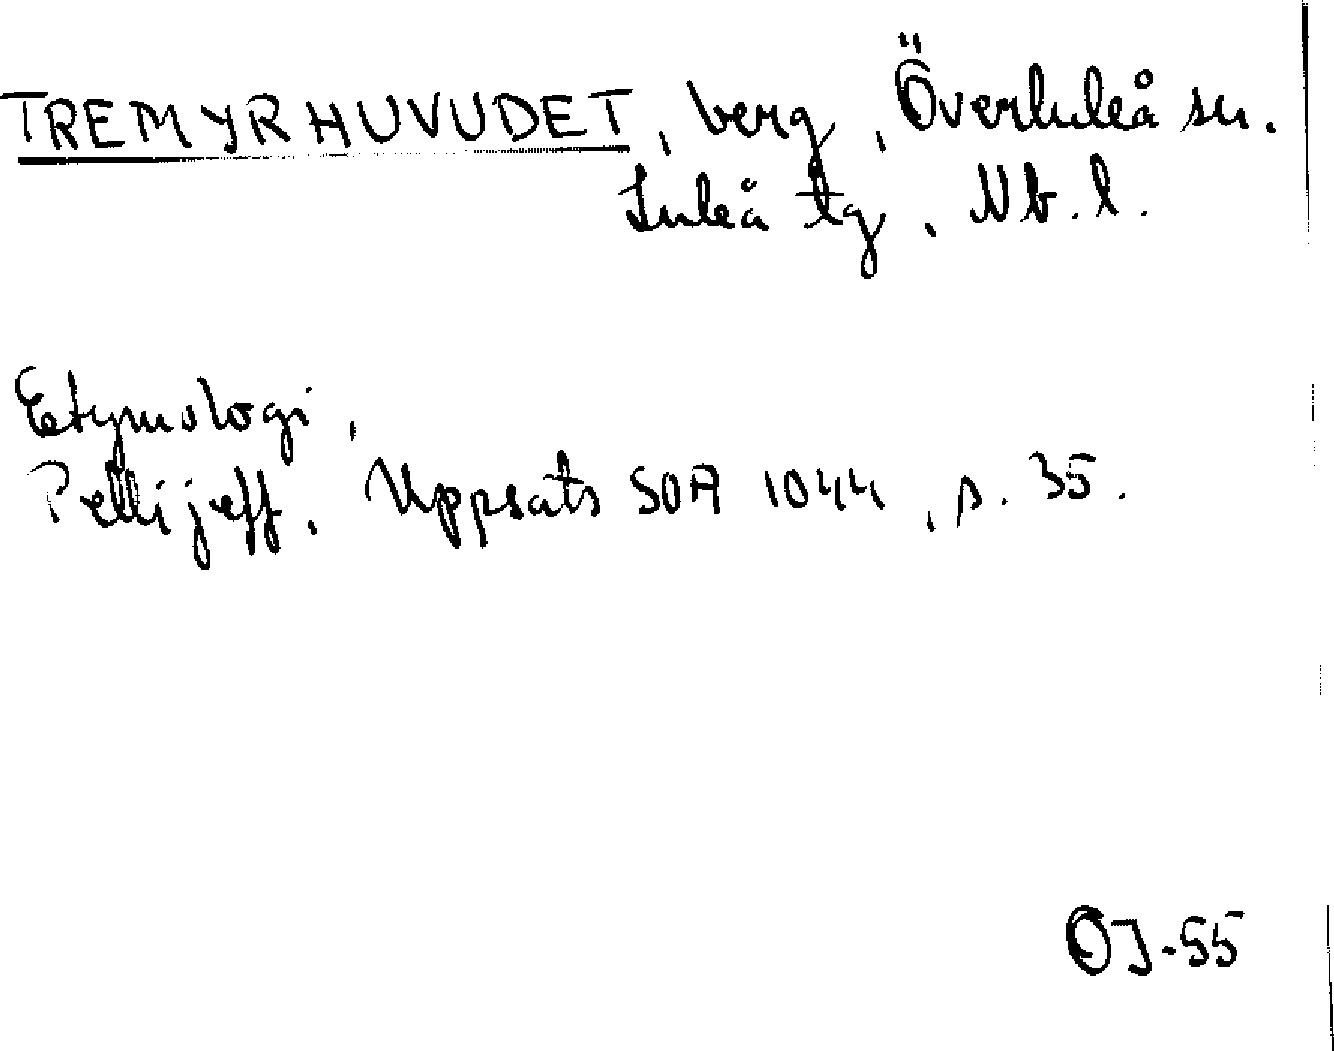 TREMYRHUVUDET, berg, Överluleå sn.
Luleå tg, Nb. l.
Etymologi,
Pellijeff, Uppsats SOA 1044, s. 35.
OJ-55